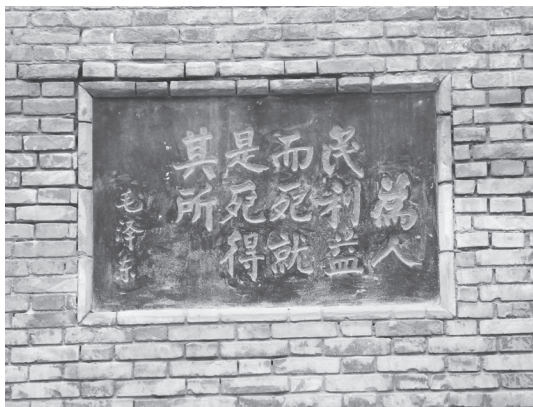 為人
民利益
而死就
是死得
其所
毛泽东